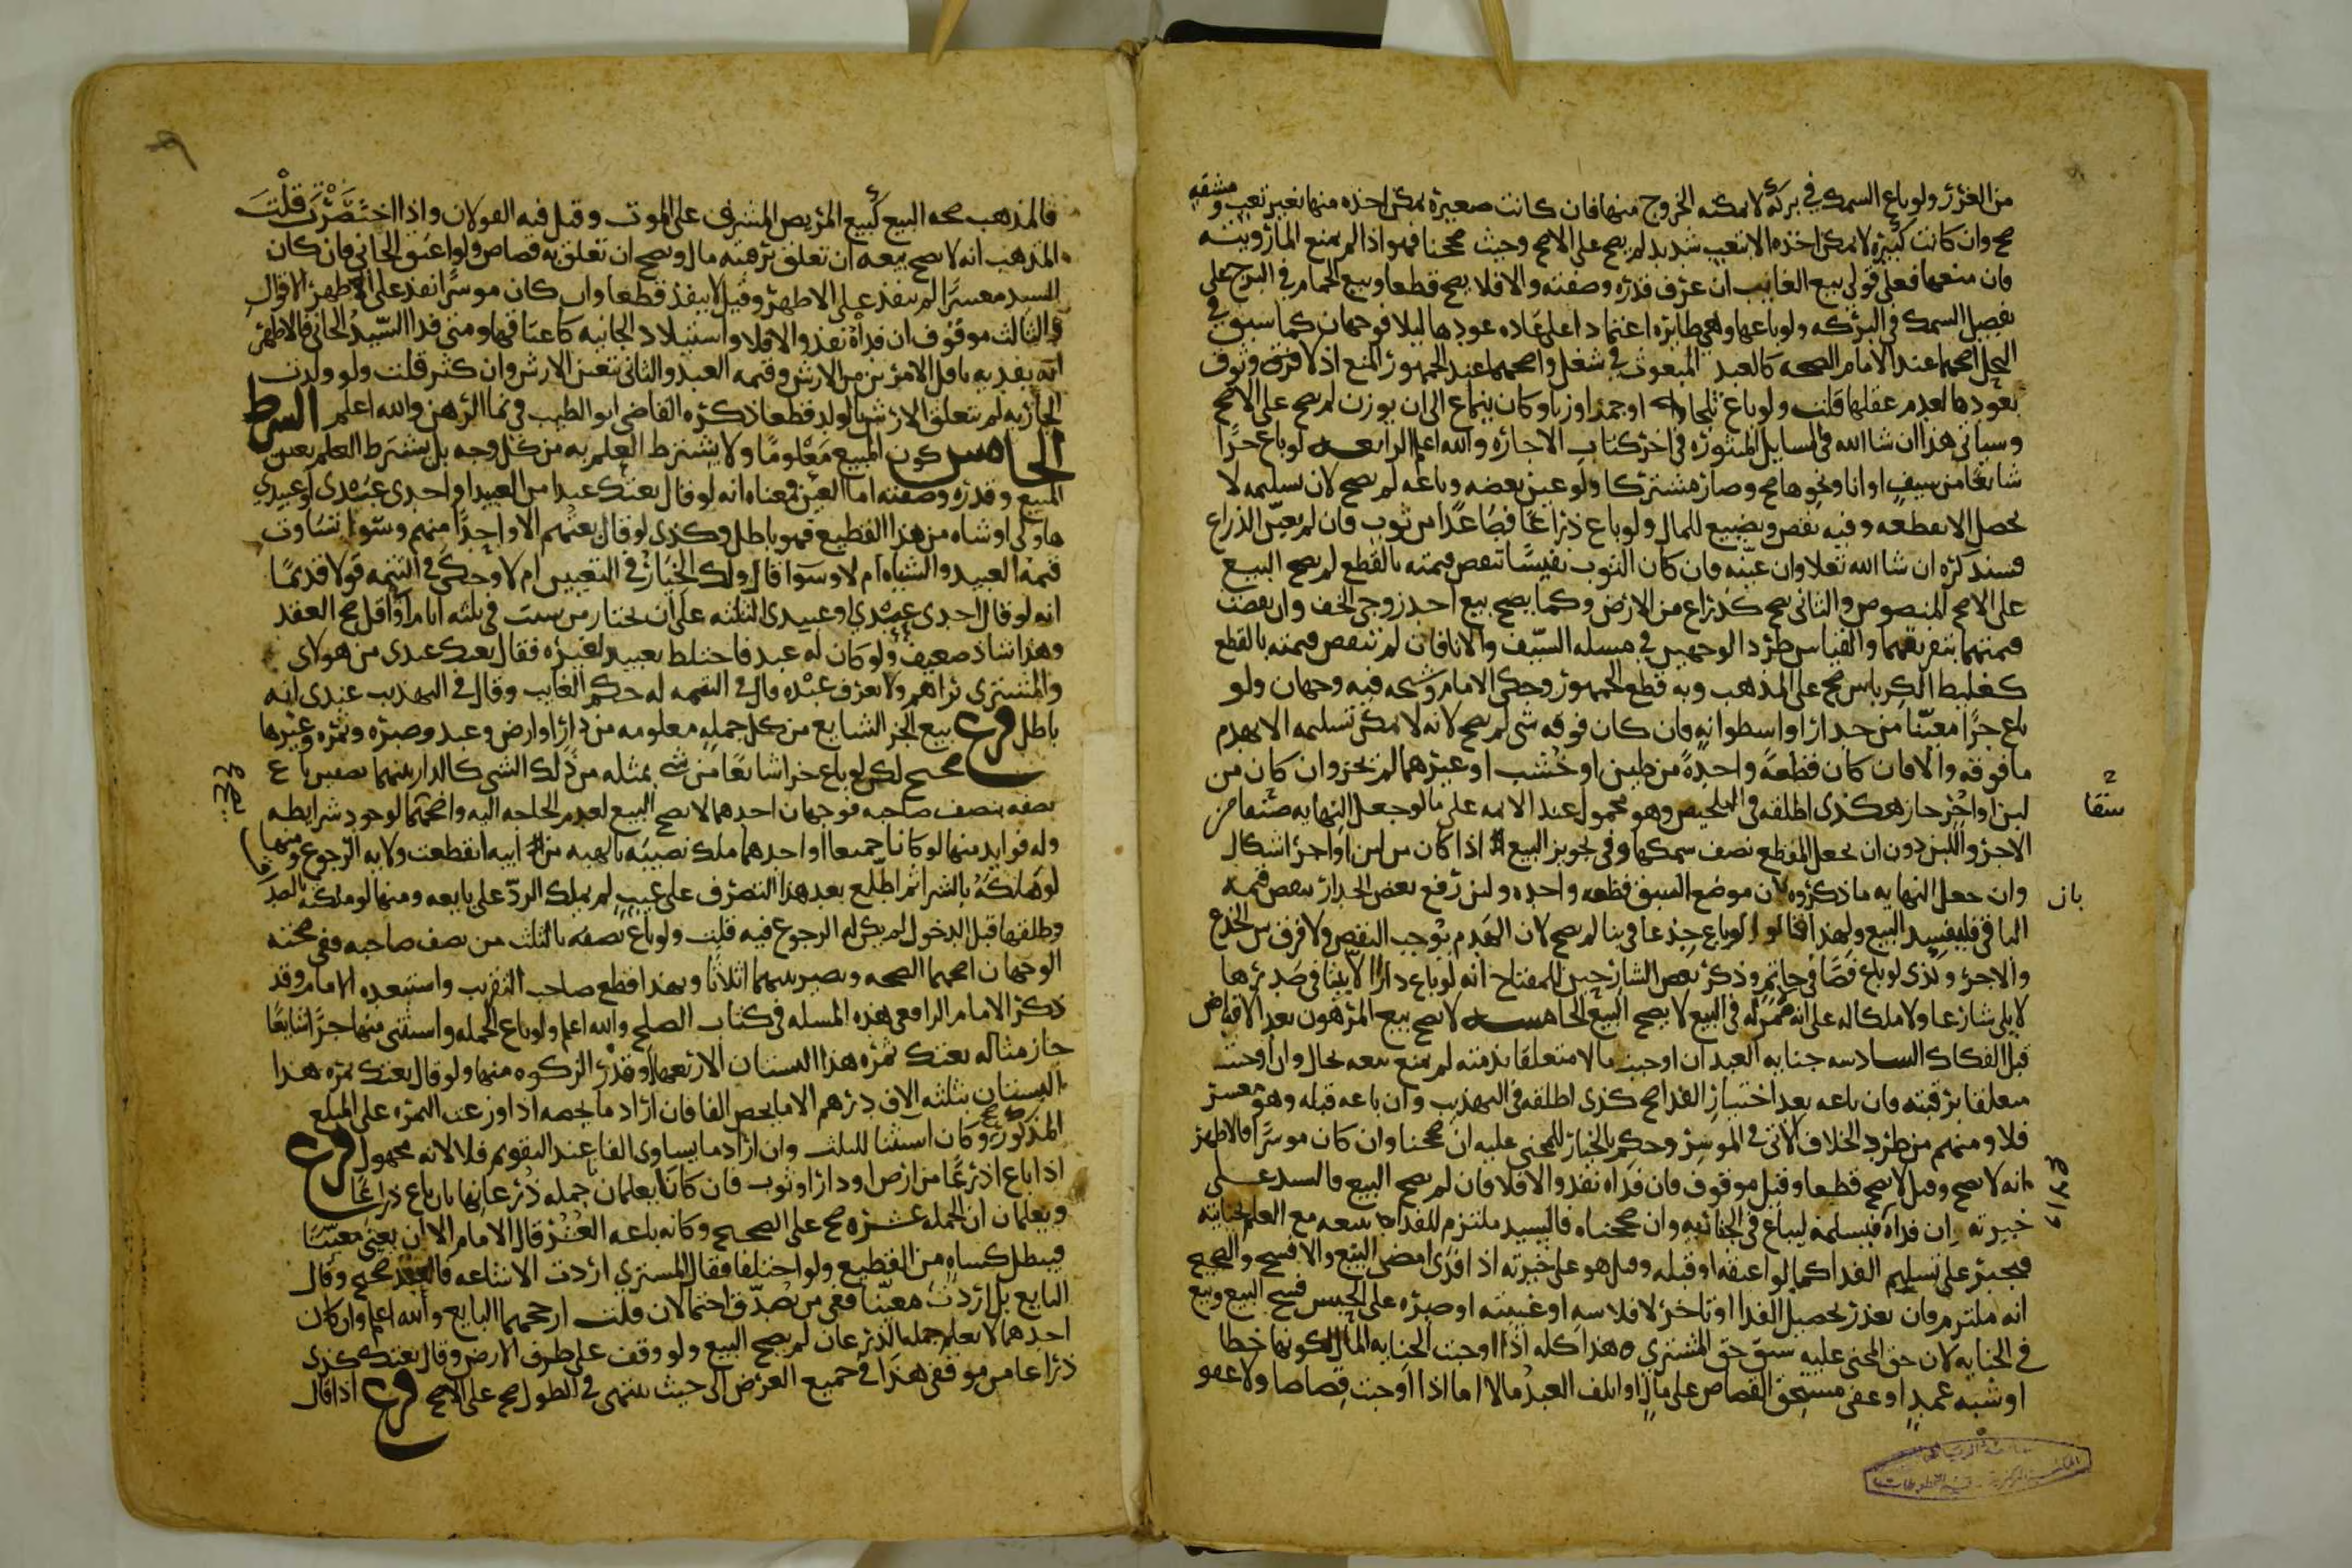 من الغرر ولو باع السمك في بركة لا يمكنه الخروج منها فان كانت صغيرة يمكن اخذه منها بغير تعب ومشقه
صح وان كانت كبيرة لا يمكن اخذه الا بتعب شديد لم يصح على الاصح وحيث صححنا فهو اذا لم يمنع الما رويته
فان منعها فعلى قولي بيع الغايب ان عرف قدره وصفته والا فلا يصح قطعا وبيع الحمام في البرج على
تفصيل السمك في البركه ولو باعها وهي طايره اعتمادا على عاده عودها ليلا فوجهان كما سبق في
النحل اصحهما عند الامام الصحه كالعبد المبعوث في شغل واصحهما عند الجمهور المنع اذ لا وثوق
بعودها لعدم عقلها قلت ولو باع ثلجا او جمدا وزنا وكان ينماع الى ان يوزن لم يصح على الاصح
وسياتي هذا ان شا الله في المسايل المنثوره في اخر كتاب الاجاره والله اعلم الرابعه لو باع جزا
شايعا من سيف او انا ونحوها صح وصار مشتركا ولو عين بعضه وباعه لم يصح لان تسليمه لا
يحصل الا بقطعه وفيه نقص وتضييع للمال ولو باع ذراعا فصاعدا من ثوب فان لم يعين الذراع
فسنذكره ان شا الله تعلا وان عينه فان كان الثوب نفيسا تنقص قيمته بالقطع لم يصح البيع
على الاصح المنصوص والثاني يصح كذراع من الارض وكما يصح بيع احد زوجي الخف وان نقصت
قيمتهما بتفريقهما والقياس طرد الوجهين في مسله السيف والانا فان لم تنقص قيمته بالقطع
كغليظ الكرباس صح على المذهب وبه قطع الجمهور وحكى الامام وشيخه فيه وجهان ولو
باع جزا معينا من جدار او اسطوانه فان كان فوقه شي لم يصح لانه لا يمكن تسليمه الا بهدم
ما فوقه والا فان كان قطعة واحدة من طين او خشب او غيرهما لم يجز وان كان من
لبن او اجر جاز هكذي اطلقه في التلخيص وهو محمول عند الايمه على ما لو جعل النهايه صفا من
الاجر واللبن دون ان يجعل المقطع نصف سمكها وفي تجويز البيع اذا كان من لبن او اجر اشكال
وان جعل النهايه ما ذكروه لان موضع الشق قطعه واحده ولين رفع بعض الجدار ينقص قيمه
الباقي فليفسد البيع ولهذا قالوا لو باع جذعا في بنا لم يصح لان الهدم يوجب النقص ولا فرق بين الجذع
والاجر وكذي لو باع فصا في خاتم وذكر بعض الشارحين للمفتاح انه لو باع دارا الا بيتا في صدرها
لا يلي شارعا ولا ملكا له على انه لا ممر له في البيع لا يصح البيع الخامسه لا يصح بيع المرهون بعد الاقباض
قبل الفكاك السادسه جنايه العبد ان اوجبت مالا متعلقا بذمته لم يمنع بيعه بحال وان اوجبت
متعلقا برقبته فان باعه بعد اختيار الفدا صح كذى اطلقه في التهذيب وان باعه قبله وهو معسر
فلا ومنهم من طرد الخلاف الاتي في الموسر وحكم بالخيار للمجني عليه ان صححنا وان كان موسرا فالاظهر
انه لا يصح وقيل لا يصح قطعا وقيل موقوف فان فداه نفذ والا فلا فان لم يصح البيع فالسيد على
خيرته ان فداه فيسلمه ليباع في الجنايه وان صححناه فالسيد ملتزم للفدا ببيعه مع العلم بجنايته
فيجبر على تسليم الفدا كما لو اعتقه او قتله وقيل هو على خيرته اذ افدى امضى البيع والا فسخ والصحيح
انه ملتزم فان تعذر تحصيل الفدا او تاخر لافلاسه او غيبته او صبره على الحبس فسخ البيع وبيع
في الجنايه لان حق المجني عليه سبق حق المشتري هذا كله اذا اوجبت الجنايه المال لكونها خطا
او شبه عمد او عفى مستحق القصاص على مال او اتلف العبد مالا اما اذا اوجبت قصاصا ولا عفو
فالمذهب صحه البيع كبيع المريض المشرف على الموت وقيل فيه القولان واذا اختصرت قلت
المذهب انه لا يصح بيعه ان تعلق برقبته مال ويصح ان تعلق به قصاص ولو اعتق الجاني فان كان
السيد معسرا لم ينفذ على الاظهر وقيل لا ينفذ قطعا وان كان موسرا نفذ على اظهر الاقوال
والثالث موقوف ان فداه نفذ والا فلا واستيلاد الجانيه كاعتاقها ومتى فدا السيد الجاني فالاظهر
انه يفديه باقل الامرين من الارش وقيمه العبد والثاني يتعين الارش وان كثر قلت ولو ولدت
الجاريه لم يتعلق الارش بالولد قطعا ذكره القاضي ابو الطيب في نما الرهن والله اعلم الشرط
الخامس كون المبيع معلوما ولا يشترط العلم به من كل وجه بل يشترط العلم بعين
المبيع وقدره وصفته اما العين فمعناه انه لو قال بعتك عبدا من العبيد او احدى عبدي او عبيدي
هاولى او شاه من هذا القطيع فهو باطل وكذى لو قال بعتهم الا واحدا منهم وسوا تساوت
قيمه العبيد والشياه ام لا وسوا قال ولك الخيار في التعيين ام لا وحكى في التتمه قولا قديما
انه لو قال احدى عبدي او عبيدي الثلثه على ان تختار من شيت في ثلثه ايام او اقل صح العقد
وهذا شاذ ضعيف ولو كان له عبد فاختلط بعبيد لغيره فقال بعتك عبدي من هولاي
والمشتري يراهم ولا يعرف عبده قال في التتمه له حكم الغايب وقال في التهذيب عندي انه
باطل فرع بيع الجز الشايع من كل جمله معلومه من دار او ارض وعبد وصبره وثمره وغيرها
صحيح لكن لو باع جزا شايعا من شي بمثله من ذلك الشي كالدار بينهما نصفين باع
نصفه بنصف صاحبه فوجهان احدهما لا يصح البيع لعدم الحاجه اليه واصحهما لوجود شرايطه
وله فوايد منها لو كانا جميعا او احدهما ملك نصيبه بالهبه من ابيه انقطعت ولايه الرجوع ومنها
لو ملكه بالشرا ثم اطلع بعد هذا التصرف على عيب لم يملك الرد على بايعه ومنها لو ملكته بالصداق
وطلقها قبل الدخول لم يكن له الرجوع فيه قلت ولو باع نصفه بالثلث من نصف صاحبه ففي صحته
الوجهان اصحهما الصحه ويصير بينهما اثلاثا وبهذا قطع صاحب التقريب واستبعده الامام وقد
ذكر الامام الرافعي هذه المسله في كتاب الصلح والله اعلم ولو باع الجمله واستثنى منها جزا شايعا
جاز مثاله بعتك ثمره هذا البستان الا ربعها او قدر الزكوه منها ولو قال بعتك ثمره هذا
البستان بثلثه الاف درهم الا ما يخص الفا فان اراد ما يخصه اذا وزعت الثمره على المبلغ
المذكور صح وكان استثنا للثلث وان اراد ما يساوى الفا عند التقويم فلا لانه مجهول فرع
اذا باع اذرعا من ارض او دار او ثوب فان كانا يعلمان جمله ذرعانها بان باع ذراعا
ويعلمان ان الجمله عشره صح على الصحيح وكانه باعه العشر قال الامام الا ان يعنى معينا
فيبطل كشاه من القطيع ولو اختلفا فقال المشتري اردت الاشاعه فالعقد صحيح وقال
البايع بل اردت معينا ففي من يصدق احتمالان قلت ارجحهما البايع والله اعلم وان كان
احدهما لا يعلم جمله الذرعان لم يصح البيع ولو وقف على طرف الارض وقال بعتك كذى
ذراعا من موقفي هذا في جميع العرض الى حيث ينتهى في الطول صح على الاصح فرع اذا قال